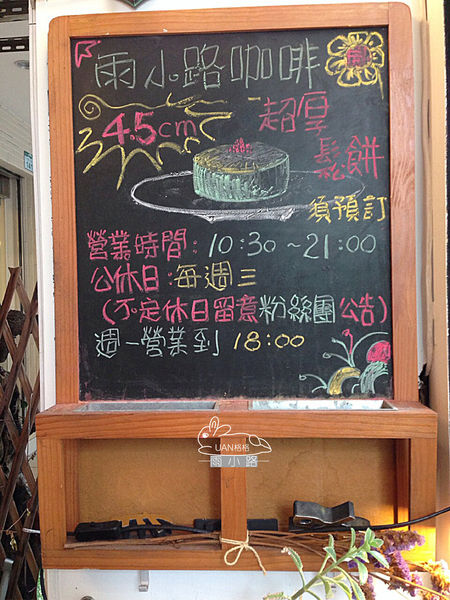 雨小路咖啡
4.5cm
超厚
鬆餅
須預訂
營業時間：10:30～21:00
公休日：每週三
（不定休日留意粉絲團公告）
週一營業到 18:00
UAN格格
雨小路